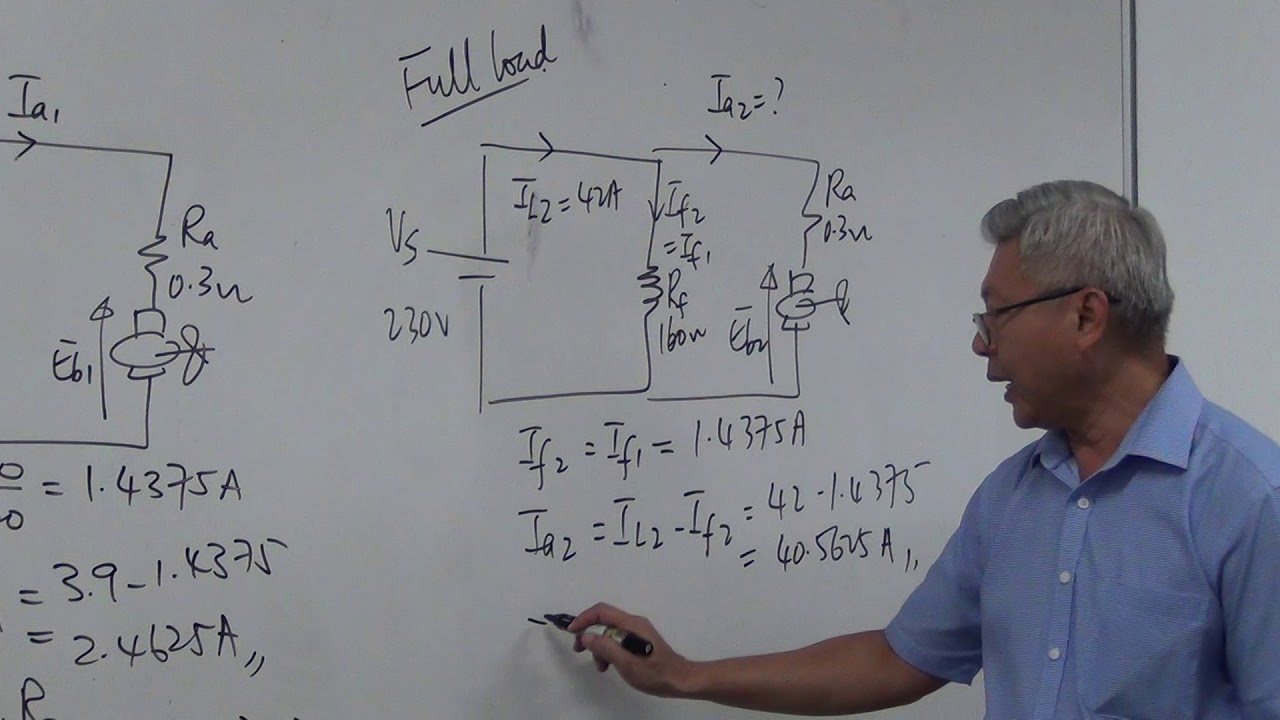 Ia1
Ra
0.3Ω
Eb1
= 1.4375A
= 3.9 - 1.4375
= 2.4625A,,
R
Full load
Ia2 = ?
IL2 = 42A
Vs
230V
If2
= If1
Rf
160Ω
Ra
0.3Ω
Eb2
If2 = If1 = 1.4375A
Ia2 = IL2 - If2 = 42 - 1.4375
= 40.5625A,,